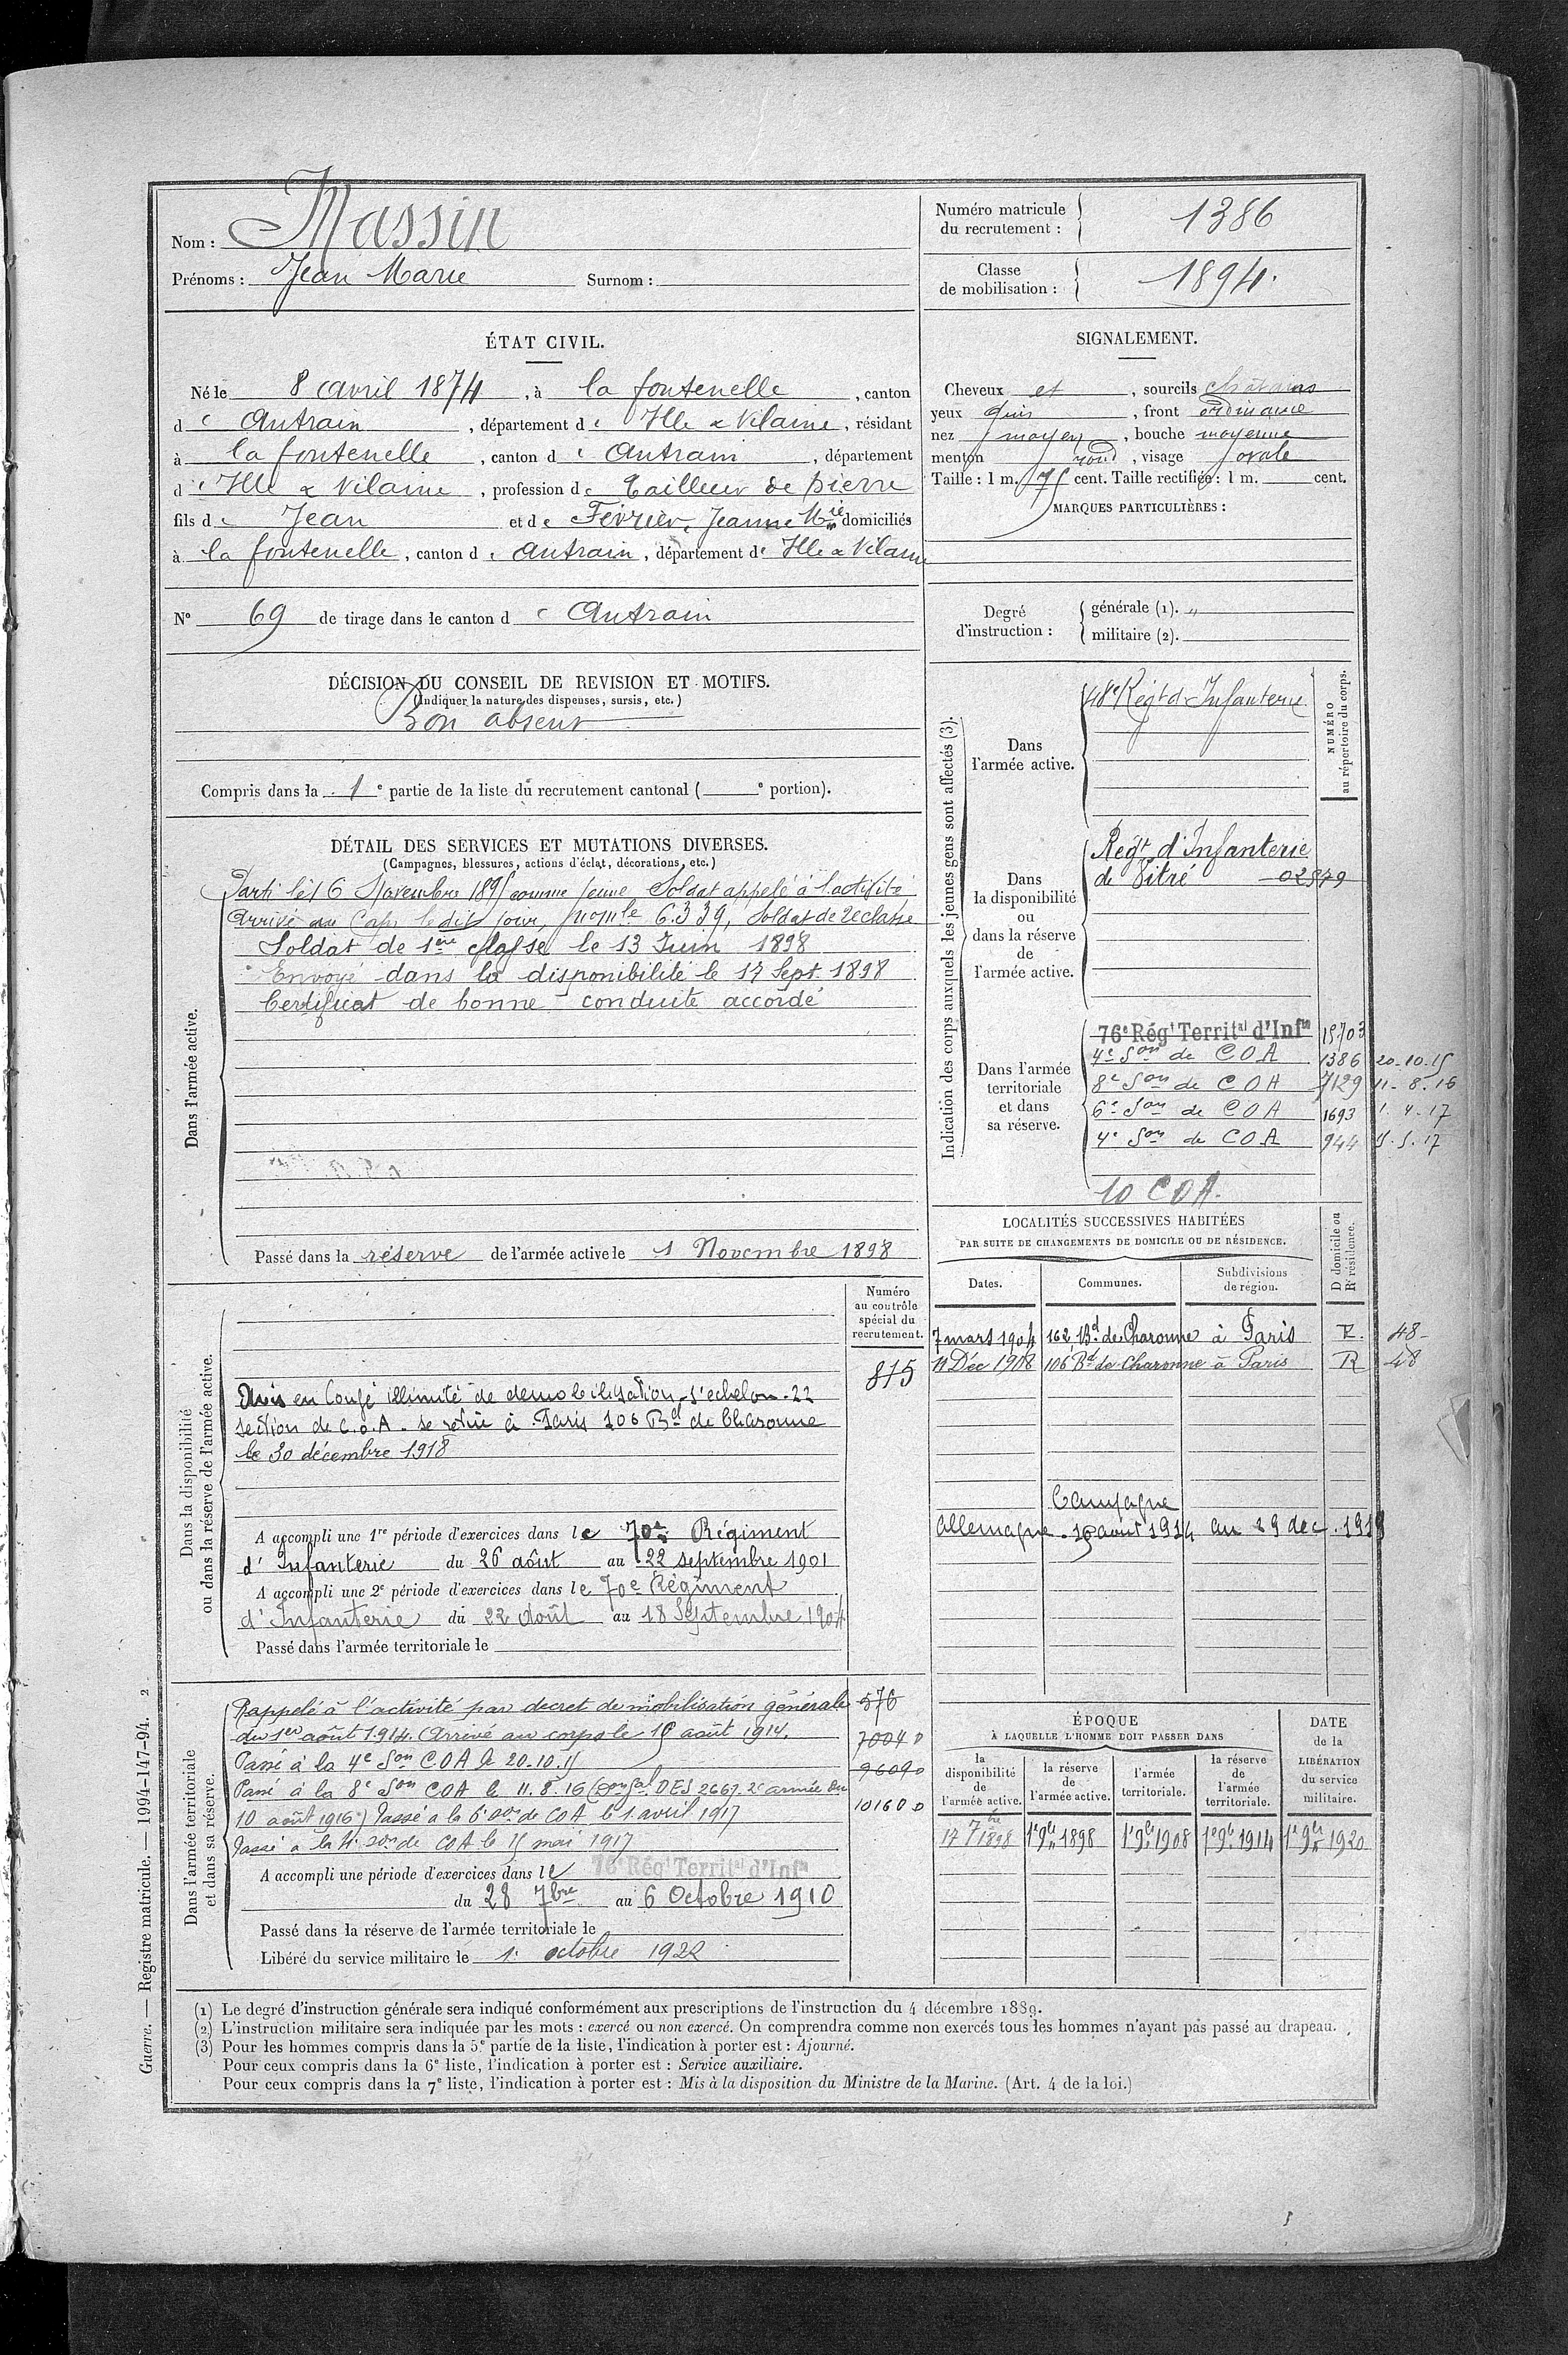 Nom : Massin
Prénoms : Jean Marie Surnom :
Numéro matricule du recrutement : 1386
Classe de mobilisation : 1894.
ÉTAT CIVIL.
Né le 8 avril 1874, à la fontenelle, canton
d e Antrain, département d e Ille & Vilaine, résidant
à la fontenelle, canton d e Antrain, département
d' Ille & Vilaine, profession de tailleur de pierre
fils de Jean et de Février, Jeanne Mie domiciliés
à la fontenelle, canton d e Antrain, département d' Ille & Vilaine
No 69 de tirage dans le canton d e Antrain
SIGNALEMENT.
Cheveux et, sourcils châtains
yeux gris, front ordinaire
nez moyen, bouche moyenne
menton rond, visage ovale
Taille : 1 m. 75 cent. Taille rectifiée : 1 m. cent.
MARQUES PARTICULIÈRES :
Degré d'instruction :
générale (1). "
militaire (2).
DÉCISION DU CONSEIL DE REVISION ET MOTIFS.
(Indiquer la nature des dispenses, sursis, etc.)
Bon absent
Compris dans la 1e partie de la liste du recrutement cantonal ( e portion).
DÉTAIL DES SERVICES ET MUTATIONS DIVERSES.
(Campagnes, blessures, actions d'éclat, décorations, etc.)
Dans l'armée active.
Parti le 16 Novembre 1895 comme jeune Soldat appelé à l'activité
Arrivé au Corps le dit jour, no mle 6.339, Soldat de 2e classe
Soldat de 1ère classe le 13 Juin 1898
Envoyé dans la disponibilité le 17 Sept. 1898
Certificat de bonne conduite accordé
Passé dans la réserve de l'armée active le 1 Novembre 1898
Indication des corps auxquels les jeunes gens sont affectés (3).
NUMÉRO au répertoire du corps.
Dans l'armée active.
48e Régt d'Infanterie
Dans la disponibilité ou dans la réserve de l'armée active.
Régt d'Infanterie
de Vitré 02579
Dans l'armée territoriale et dans sa réserve.
76e Régt Territal d'Infie 15703
4e Son de COA 1386 20-10-15
8e Son de COA 7129 11-8-16
6e Son de COA 1693 1-4-17
4e Son de COA 944 15.5.17
10 COA.
LOCALITÉS SUCCESSIVES HABITÉES
PAR SUITE DE CHANGEMENTS DE DOMICILE OU DE RÉSIDENCE.
Dates. Communes. Subdivisions de région. D domicile ou R résidence.
7 mars 1904 162 Bd de Charonne à Paris R. 48-
11 Déc 1908 106 Bd de Charonne à Paris R 48
Campagne
Allemagne 16 août 1914 au 29 dec. 1918
Dans la disponibilité ou dans la réserve de l'armée active.
Numéro au contrôle spécial du recrutement.
815
Mis en Congé illimité de démobilisation - 1' echelon - 22
section de C.O.A - se retire à Paris 106 Bd de Charonne
le 30 décembre 1918
A accompli une 1re période d'exercices dans le 70e Régiment
d'Infanterie du 26 août au 22 septembre 1901
A accompli une 2e période d'exercices dans le 70e Régiment
d'Infanterie du 22 Août au 18 Septembre 1904
Passé dans l'armée territoriale le
Dans l'armée territoriale et dans sa réserve.
Rappelé à l'activité par decret de mobilisation générale 576
du 1er août 1914. Arrivé au corps le 16 août 1914. 7004 D
Passé à la 4e Son COA le 20.10.15 9609 D
Passé à la 8e Son COA le 11.8.16 DES 2667. 2e armée du
10 août 1916) Passé a la 6e Son de COA le 1 avril 1917 10160 D
Passé a la 4e Son de COA le 15 mai 1917
A accompli une période d'exercices dans le 76e Régt Territal d'Infie
du 28 7bre au 6 Octobre 1910
Passé dans la réserve de l'armée territoriale le
Libéré du service militaire le 1. octobre 1922
ÉPOQUE
À LAQUELLE L'HOMME DOIT PASSER DANS
la disponibilité de l'armée active. la réserve de l'armée active. l'armée territoriale. la réserve de l'armée territoriale.
DATE de la LIBÉRATION du service militaire.
17 7bre 1898 1e 9bre 1898 1e 9bre 1908 1e 9bre 1914 1e 9bre 1920
(1) Le degré d'instruction générale sera indiqué conformément aux prescriptions de l'instruction du 4 décembre 1889.
(2) L'instruction militaire sera indiquée par les mots : exercé ou non exercé. On comprendra comme non exercés tous les hommes n'ayant pas passé au drapeau.
(3) Pour les hommes compris dans la 5e partie de la liste, l'indication à porter est : Ajourné.
Pour ceux compris dans la 6e liste, l'indication à porter est : Service auxiliaire.
Pour ceux compris dans la 7e liste, l'indication à porter est : Mis à la disposition du Ministre de la Marine. (Art. 4 de la loi.)
Guerre. — Registre matricule. — 1994-147-94. 2